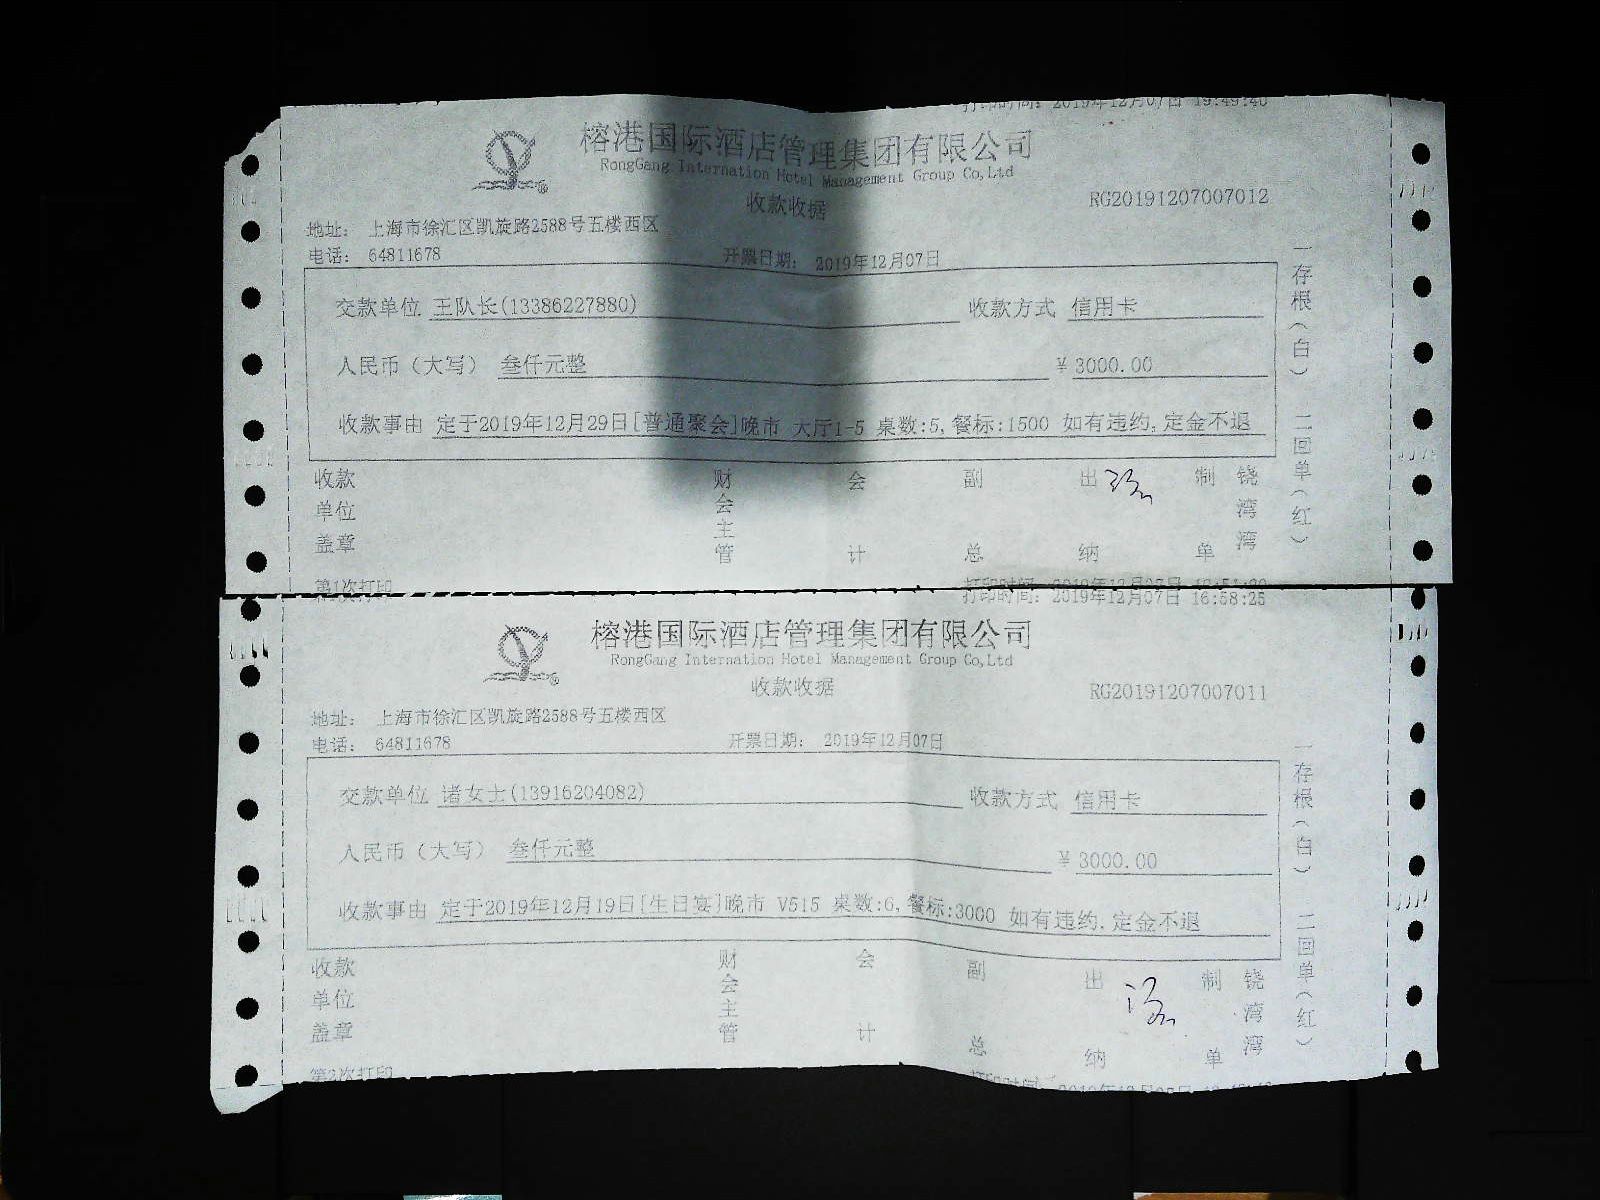 打印时间: 2019年12月07日 19:49:40
榕港国际酒店管理集团有限公司
RongGang Internation Hotel Management Group Co,Ltd
收款收据
RG20191207007012
地址: 上海市徐汇区凯旋路2588号五楼西区
电话: 64811678 开票日期: 2019年12月07日
交款单位 王队长(13386227880) 收款方式 信用卡
人民币(大写) 叁仟元整 ¥ 3000.00
收款事由 定于2019年12月29日[普通聚会]晚市 大厅1-5 桌数:5,餐标:1500 如有违约,定金不退
一存根(白) 二回单(红)
收款单位盖章 财会主管 会计 副总 出纳 制单 饶湾湾
第1次打印
打印时间: 2019年12月07日 16:58:25
榕港国际酒店管理集团有限公司
RongGang Internation Hotel Management Group Co,Ltd
收款收据
RG20191207007011
地址: 上海市徐汇区凯旋路2588号五楼西区
电话: 64811678 开票日期: 2019年12月07日
交款单位 诸女士(13916204082) 收款方式 信用卡
人民币(大写) 叁仟元整 ¥ 3000.00
收款事由 定于2019年12月19日[生日宴]晚市 V515 桌数:6,餐标:3000 如有违约,定金不退
一存根(白) 二回单(红)
收款单位盖章 财会主管 会计 副总 出纳 制单 饶湾湾
第2次打印